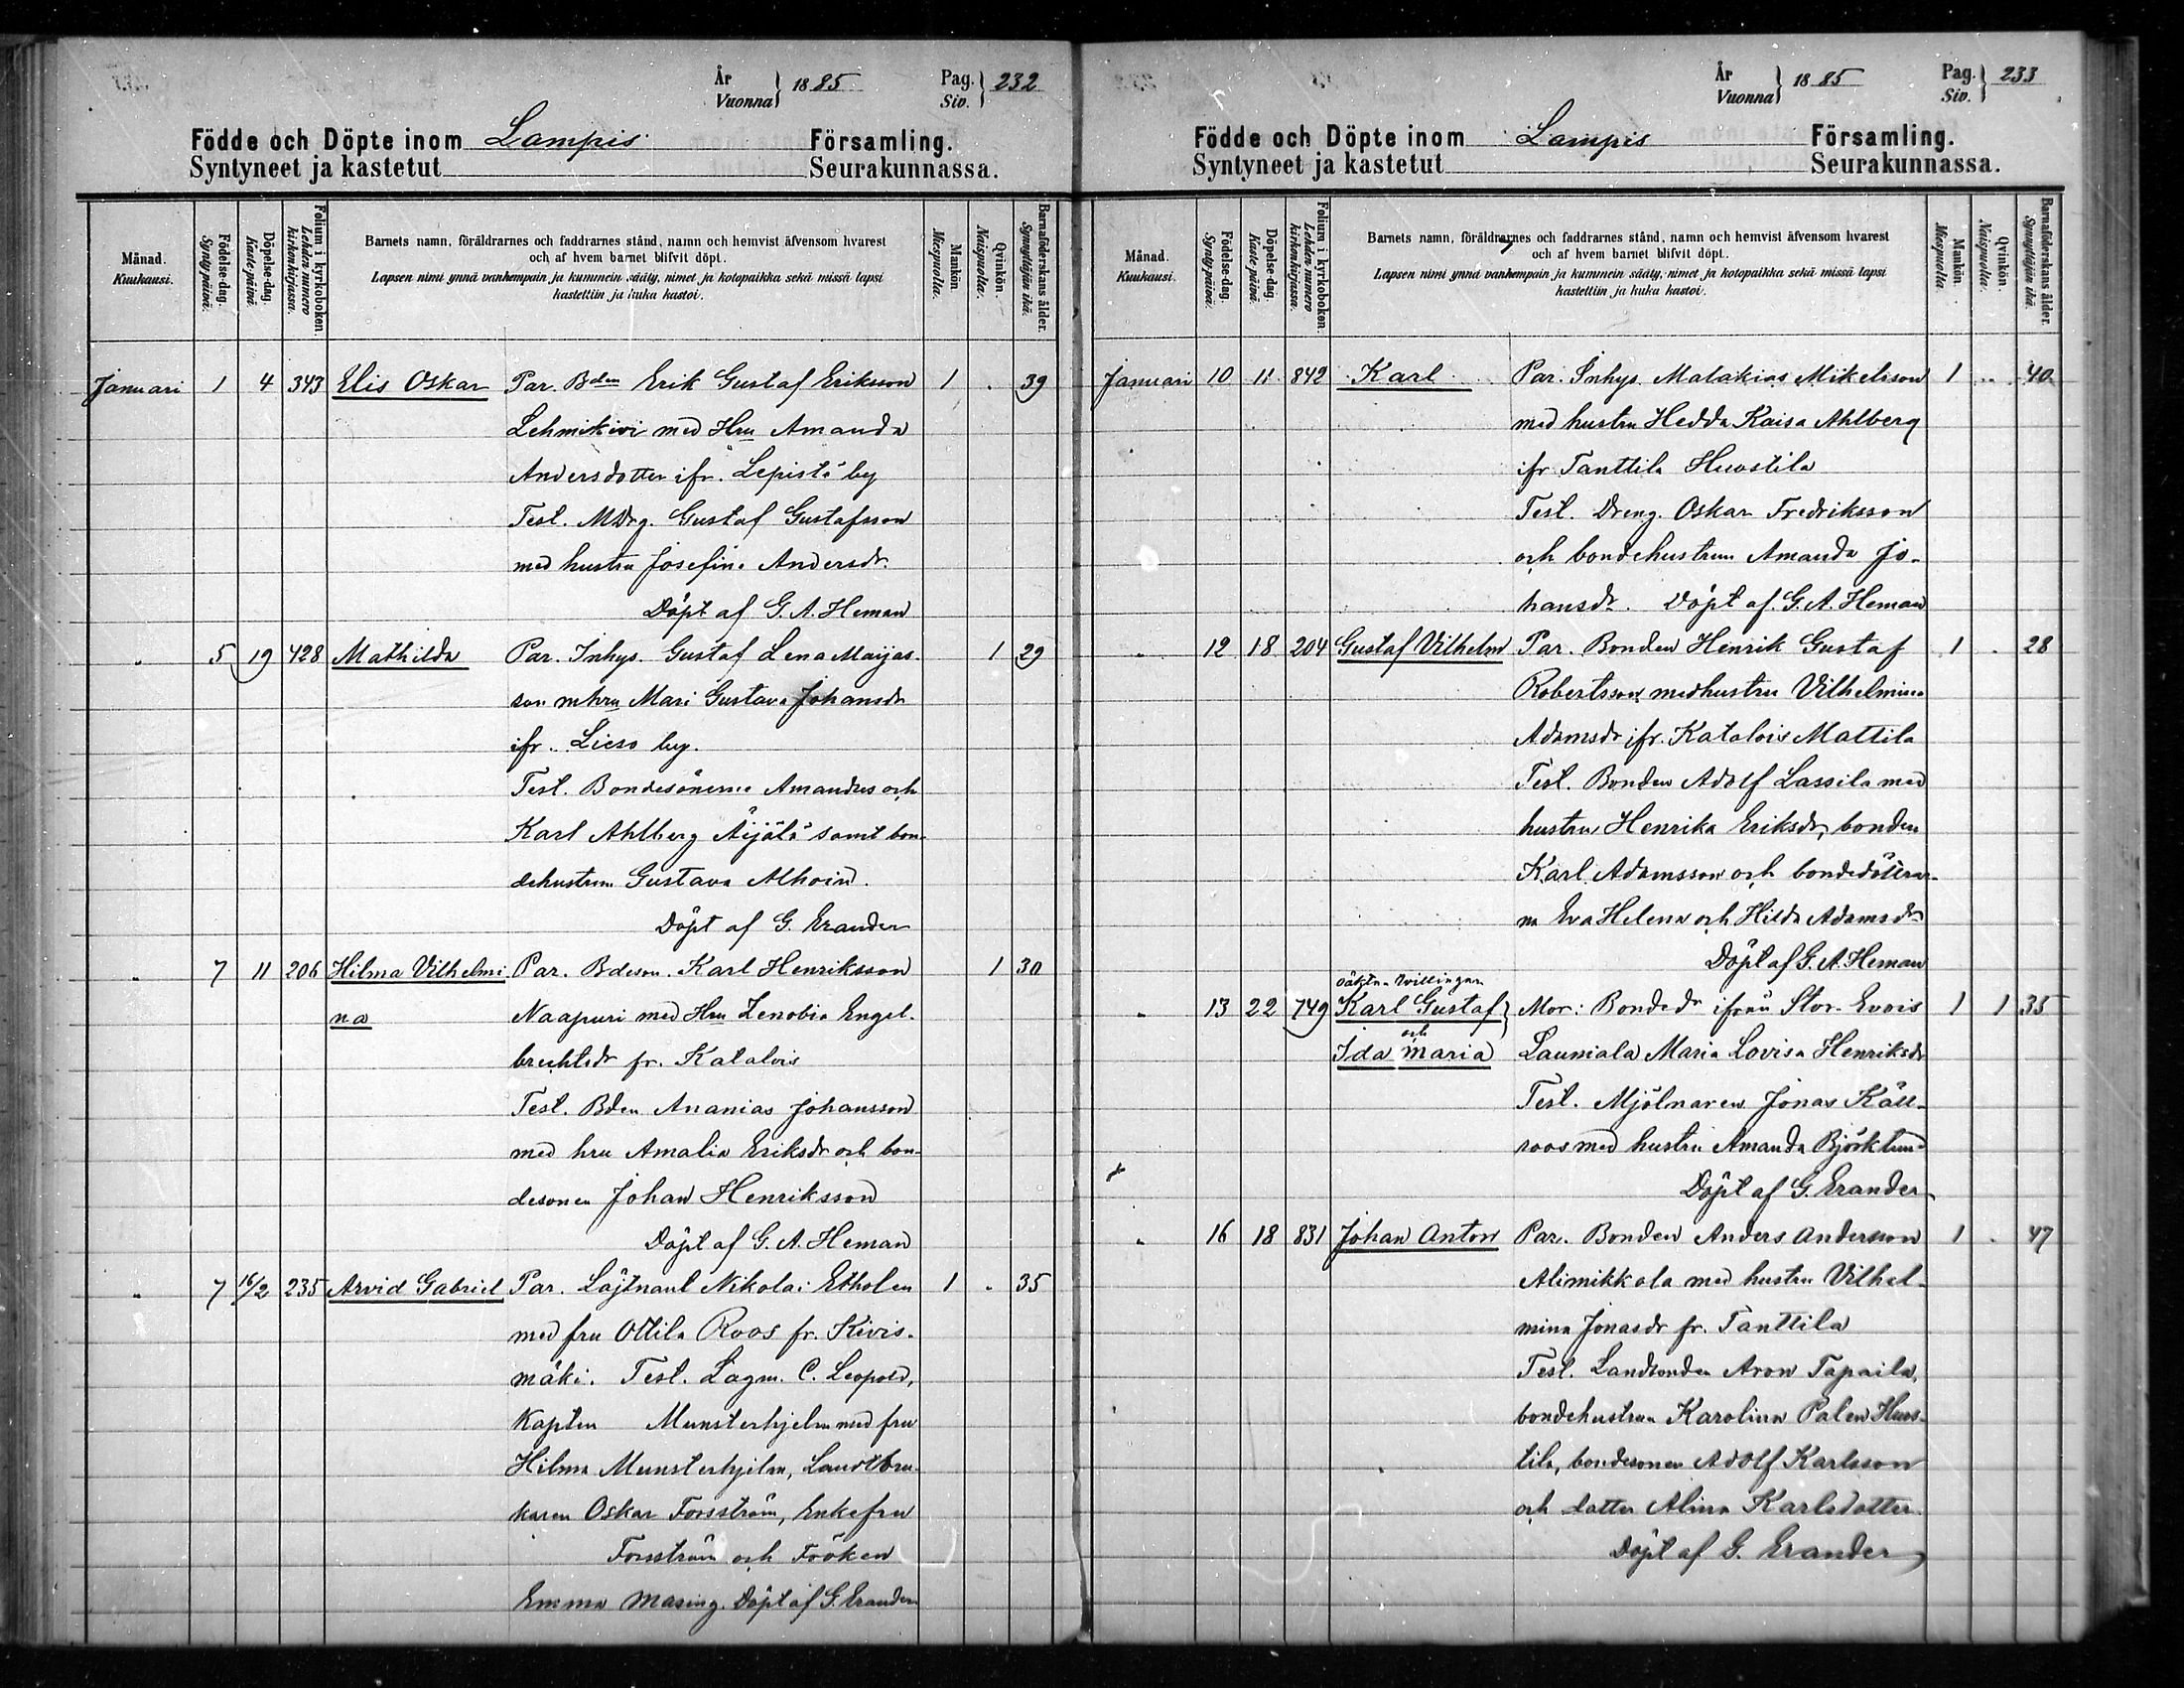 År
Vuonna } 1885 Pag.
Siv. } 232
Födde och Döpte inom Lampis Församling.
Syntyneet ja kastetut Seurakunnassa.
Månad.
Kuukausi.
Födelse-dag.
Synty-päivä.
Döpelse-dag.
Kaste-päivä.
Folium i kyrkoboken.
Lehden numero
kirkonkirjassa.
Barnets namn, föräldrarnes och faddrarnes stånd, namn och hemvist äfvensom hvarest
och af hvem barnet blifvit döpt.
Lapsen nimi ynnä vanhempain ja kummein sääty, nimet ja kotopaikka sekä missä lapsi
kastettiin ja kuka kastoi.
Mankön.
Miespuolia.
Qvinkön.
Naispuolia.
Barnaföderskans ålder.
Synnyttäjän ikä.
Januari 1 4 343 Elis Oskar Par. Bden Erik Gustaf Eriksson 1 . 39
Lehmikivi med Hru Amanda
Andersdotter ifr. Lepistö by
Test. MDrg. Gustaf Gustafsson
med hustru Josefina Andersdr.
Döpt af G. A. Heman
" 5 19 428 Mathilda Par. Inhys. Gustaf Lena Maijas- 1 29
son mhru Mari Gustava Johansdr
ifr. Lieso by.
Test. Bondesönerne Amandus och
Karl Ahlberg Äijälä samt bon-
dehustrun Gustava Alhoin.
Döpt af G. Erander
" 7 11 206 Hilma Vilhelmi Par. Bdeson. Karl Henriksson 1 30
na Naapuri med Hru Zenobia Engel-
brechtsdr fr. Kataloís
Test. Bden Ananias Johansson
med hru Amalia Eriksdr och bon-
desonen Johan Henriksson
Döpt af G. A. Heman
" 7 16/2 235 Arvid Gabriel Par. Löjtnant Nikolai Etholen 1 . 35
med fru Ottila Roos fr. Kivis-
mäki. Test. Lagm. C. Leopold,
Kapten Munsterhjelm med fru
Hilma Munsterhjelm, Landtbru-
karen Oskar Forsström, Enkefru
Forsström och Fröken
Emma Masing. Döpt af G. Erander
År
Vuonna } 1885 Pag.
Siv. } 233
Födde och Döpte inom Lampis Församling.
Syntyneet ja kastetut Seurakunnassa.
Månad.
Kuukausi.
Födelse-dag.
Synty-päivä.
Döpelse-dag.
Kaste-päivä.
Folium i kyrkoboken.
Lehden numero
kirkonkirjassa.
Barnets namn, föräldrarnes och faddrarnes stånd, namn och hemvist äfvensom hvarest
och af hvem barnet blifvit döpt.
Lapsen nimi ynnä vanhempain ja kummein sääty, nimet ja kotopaikka sekä missä lapsi
kastettiin ja kuka kastoi.
Mankön.
Miespuolia.
Qvinkön.
Naispuolia.
Barnaföderskans ålder.
Synnyttäjän ikä.
Januari 10 11 842 Karl Par. Inhys. Malakias Mikelsson 1 .. 40
med hustru Hedda Kaisa Ahlberg
ifr Tanttila Huostila
Test. Dreng. Oskar Fredriksson
och bondehustrun Amanda Jo-
hansdr. Döpt af. G. A. Heman
" 12 18 204 Gustaf Vilhelm Par. Bonden Henrik Gustaf 1 . 28
Robertsson med hustru Vilhelmina
Adamsdr ifr. Katalois Mattila
Test. Bonden Adolf Lassila med
hustru Henrika Eriksdr, bonden
Karl Adamsson och bondedöttrar-
na Eva Helena och Hilda Adamsdr
Döpt af G. A. Heman
oäkta tvillingar
" 13 22 749 Karl Gustaf } Mor: Bondedr ifrån Stor-Evois 1 1 35
och
Ida Maria Launiala Maria Lovisa Henriksdr
Test. Mjölnaren Jonas Käll-
roos med hustru Amanda Björklund
Döpt af G. Erander
" 16 18 831 Johan Anton Par. Bonden Anders Andersson 1 . 47
Alimikkola med hustru Vilhel-
mina Jonasdr fr. Tanttila
Test. Landbonden Aron Tapaila,
bondehustrun Karolina Palen Huos-
tila, bondesonen Adolf Karlsson
och dotter Alina Karlsdotter.
Döpt af G. Erander